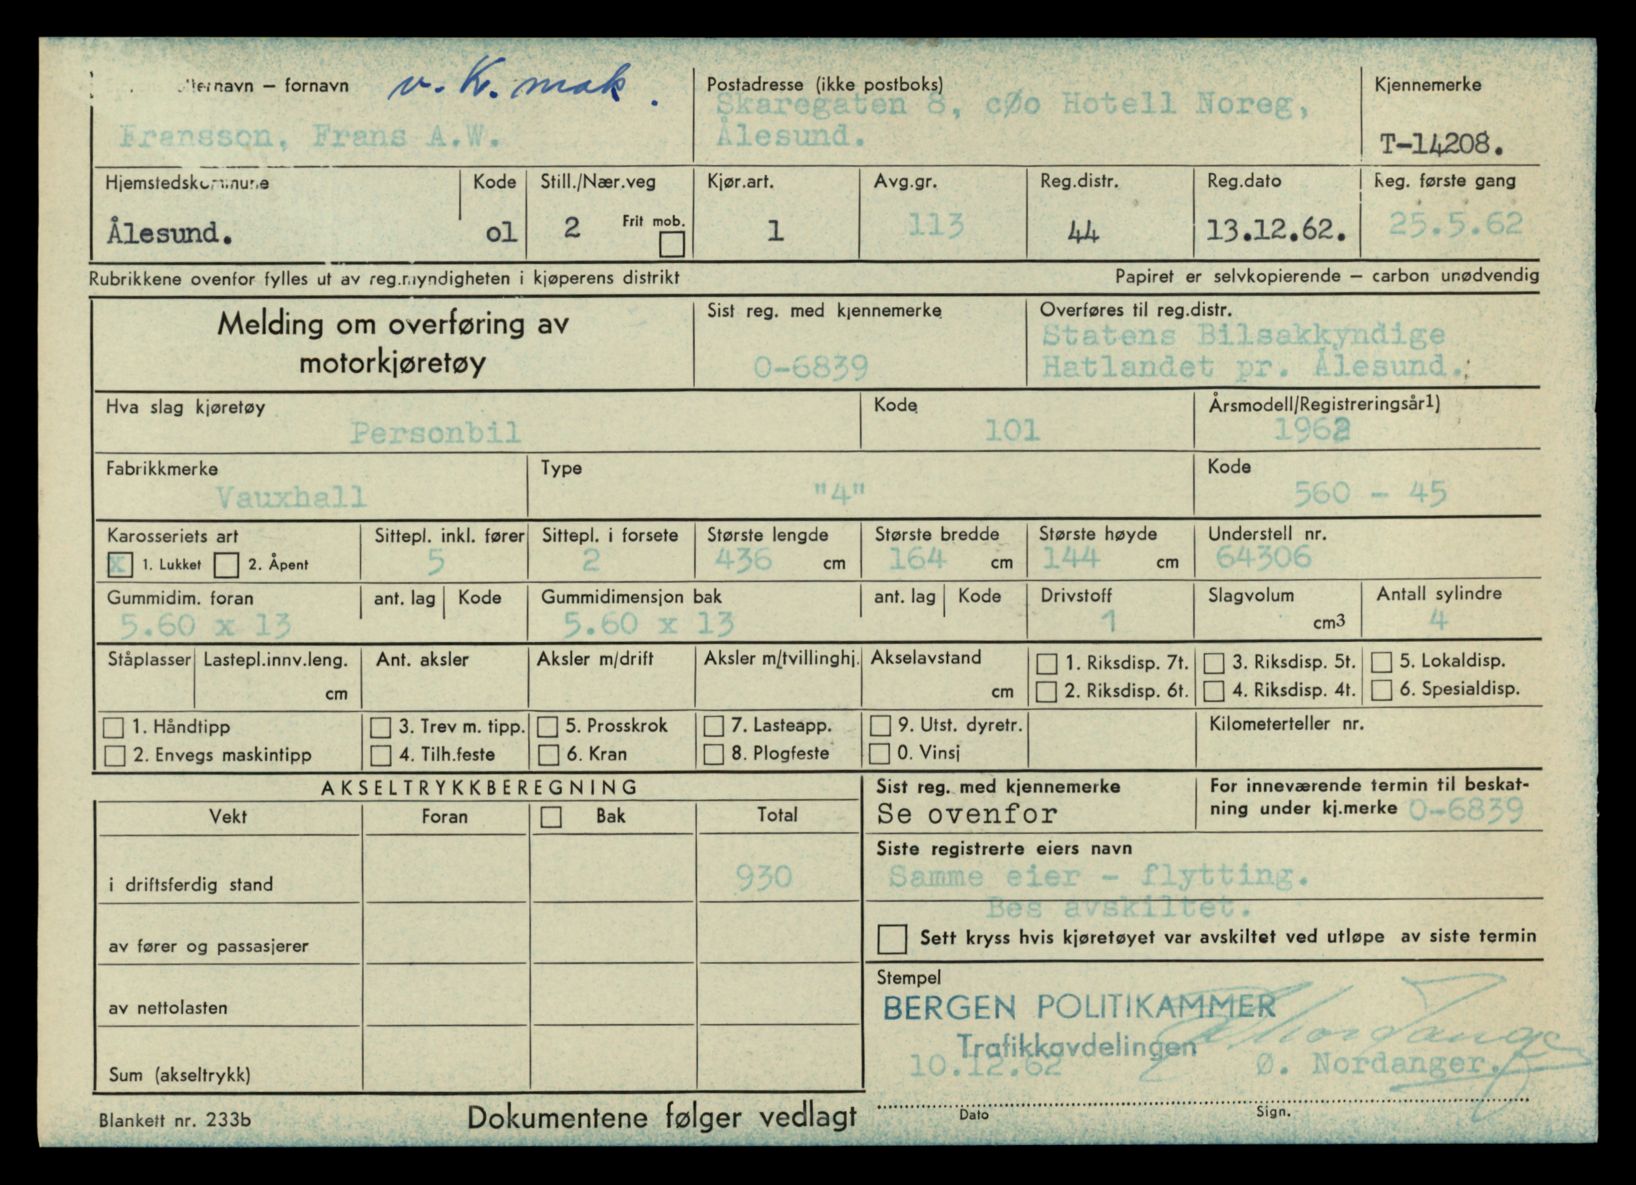 fornavn v. K. mak.
Fransson, Frans A.W.
Postadresse (ikke postboks)
Skaregaten 8, cØo Hotell Noreg,
Ålesund.
Kjennemerke
T-14208.
Hjemstedskommune
Ålesund.
Kode
o1
Still./Nær.veg
2 Frit mob.
Kjør.art.
1
Avg.gr.
113
Reg.distr.
44
Reg.dato
13.12.62.
Reg. første gang
25.5.62
Rubrikkene ovenfor fylles ut av reg.myndigheten i kjøperens distrikt
Papiret er selvkopierende – carbon unødvendig
Melding om overføring av
motorkjøretøy
Sist reg. med kjennemerke
O-6839
Overføres til reg.distr.
Statens Bilsakkyndige
Hatlandet pr. Ålesund.
Hva slag kjøretøy
Personbil
Kode
101
Årsmodell/Registreringsår1)
1962
Fabrikkmerke
Vauxhall
Type
"4"
Kode
560 - 45
Karosseriets art
x 1. Lukket 2. Åpent
Sittepl. inkl. fører
5
Sittepl. i forsete
2
Største lengde
436 cm
Største bredde
164 cm
Største høyde
144 cm
Understell nr.
64306
Gummidim. foran
5.60 x 13
ant. lag Kode
Gummidimensjon bak
5.60 x 13
ant. lag Kode
Drivstoff
1
Slagvolum
cm3
Antall sylindre
4
Ståplasser
Lastepl.innv.leng.
cm
Ant. aksler
Aksler m/drift
Aksler m/tvillinghj.
Akselavstand
cm
1. Riksdisp. 7t.
2. Riksdisp. 6t.
3. Riksdisp. 5t.
4. Riksdisp. 4t.
5. Lokaldisp.
6. Spesialdisp.
1. Håndtipp
2. Envegs maskintipp
3. Trev m. tipp.
4. Tilh.feste
5. Prosskrok
6. Kran
7. Lasteapp.
8. Plogfeste
9. Utst. dyretr.
0. Vinsj
Kilometerteller nr.
AKSELTRYKKBEREGNING
Vekt Foran Bak Total
i driftsferdig stand 930
av fører og passasjerer
av nettolasten
Sum (akseltrykk)
Sist reg. med kjennemerke
Se ovenfor
For inneværende termin til beskat-
ning under kj.merke O-6839
Siste registrerte eiers navn
Samme eier - flytting.
Bes avskiltet.
Sett kryss hvis kjøretøyet var avskiltet ved utløpe av siste termin
Stempel
BERGEN POLITIKAMMER
Trafikkavdelingen
10.12.62 Ø. Nordanger.
Dato Sign.
Blankett nr. 233b
Dokumentene følger vedlagt